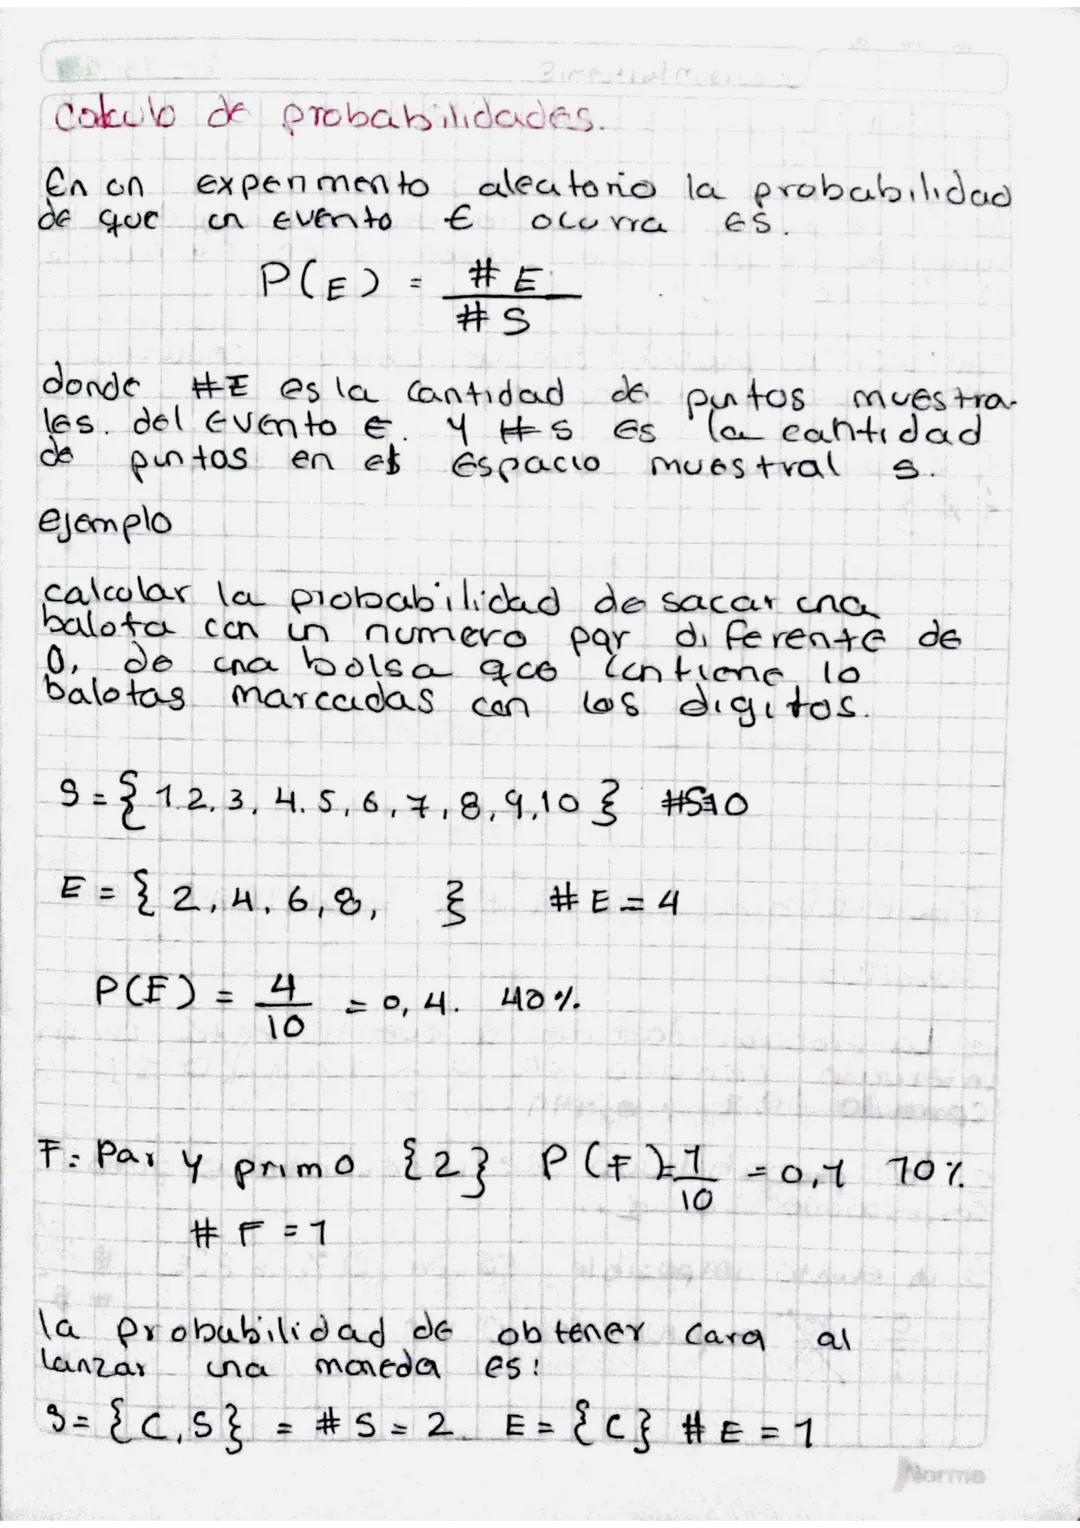 calculo de probabilidades.
En un experimento aleatorio la probabilidad
de que un evento E ocurra es.
P(E) = #E / #S
donde #E es la cantidad de puntos muestra-
les. del evento E. y #S es la cantidad
de puntos en el espacio muestral s.
ejemplo
calcular la probabilidad de sacar una
balota con un numero par diferente de
0, de una bolsa que contiene 10
balotas marcadas con los digitos.
S = { 1.2, 3, 4. 5, 6, 7, 8, 9, 10 } #S=10
E = { 2, 4, 6, 8, } #E = 4
P(E) = 4/10 = 0,4. 40%.
F: Par y primo {2} P(F)=1/10 = 0,1 10%
#F = 1
la probabilidad de obtener cara al
lanzar una moneda es:
S = {C, S} = #S = 2 E = {C} #E = 1
Norma